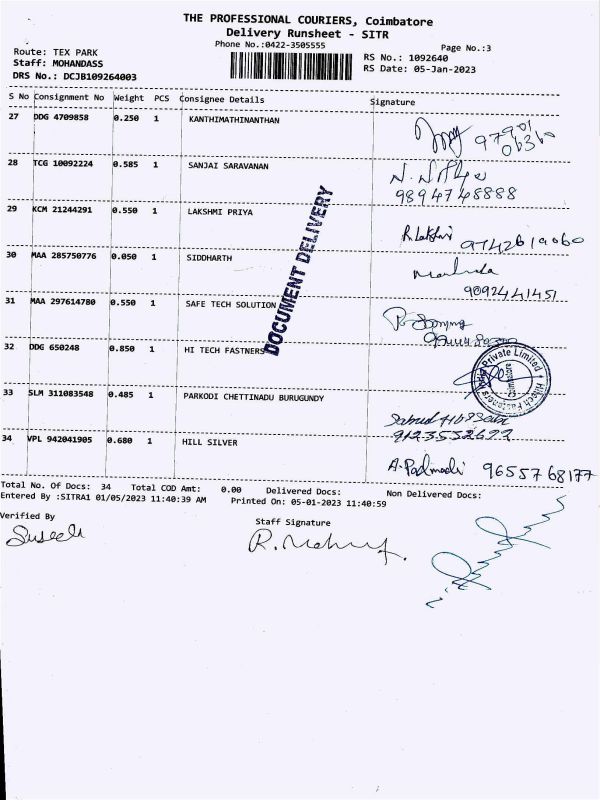 THE PROFESSIONAL COURIERS, Coimbatore
Delivery Runsheet - SITR
Phone No.:0422-3505555
Page No.:3
Route: TEX PARK
RS No.: 1092640
Staff: MOHANDASS
RS Date: 05-Jan-2023
DRS No.: DCJB109264003
S No Consignment No Weight PCS Consignee Details Signature
27 DDG 4709858 0.250 1 KANTHIMATHINANTHAN
97901
06360
28 TCG 10092224 0.585 1 SANJAI SARAVANAN
9894748888
29 KCM 21244291 0.550 1 LAKSHMI PRIYA
R. Lakshmi 9742619060
30 MAA 285750776 0.050 1 SIDDHARTH
9092441451
31 MAA 297614780 0.550 1 SAFE TECH SOLUTION
32 DDG 650248 0.850 1 HI TECH FASTNERS
Hitech Fasteners Private Limited
Coimbatore
33 SLM 311083548 0.485 1 PARKODI CHETTINADU BURUGUNDY
34 VPL 942041905 0.680 1 HILL SILVER
A. Padmadi 9655768177
DOCUMENT DELIVERY
Total No. Of Docs: 34 Total COD Amt: 0.00 Delivered Docs: Non Delivered Docs:
Entered By :SITRA1 01/05/2023 11:40:39 AM Printed On: 05-01-2023 11:40:59
Verified By
Staff Signature
Suseela